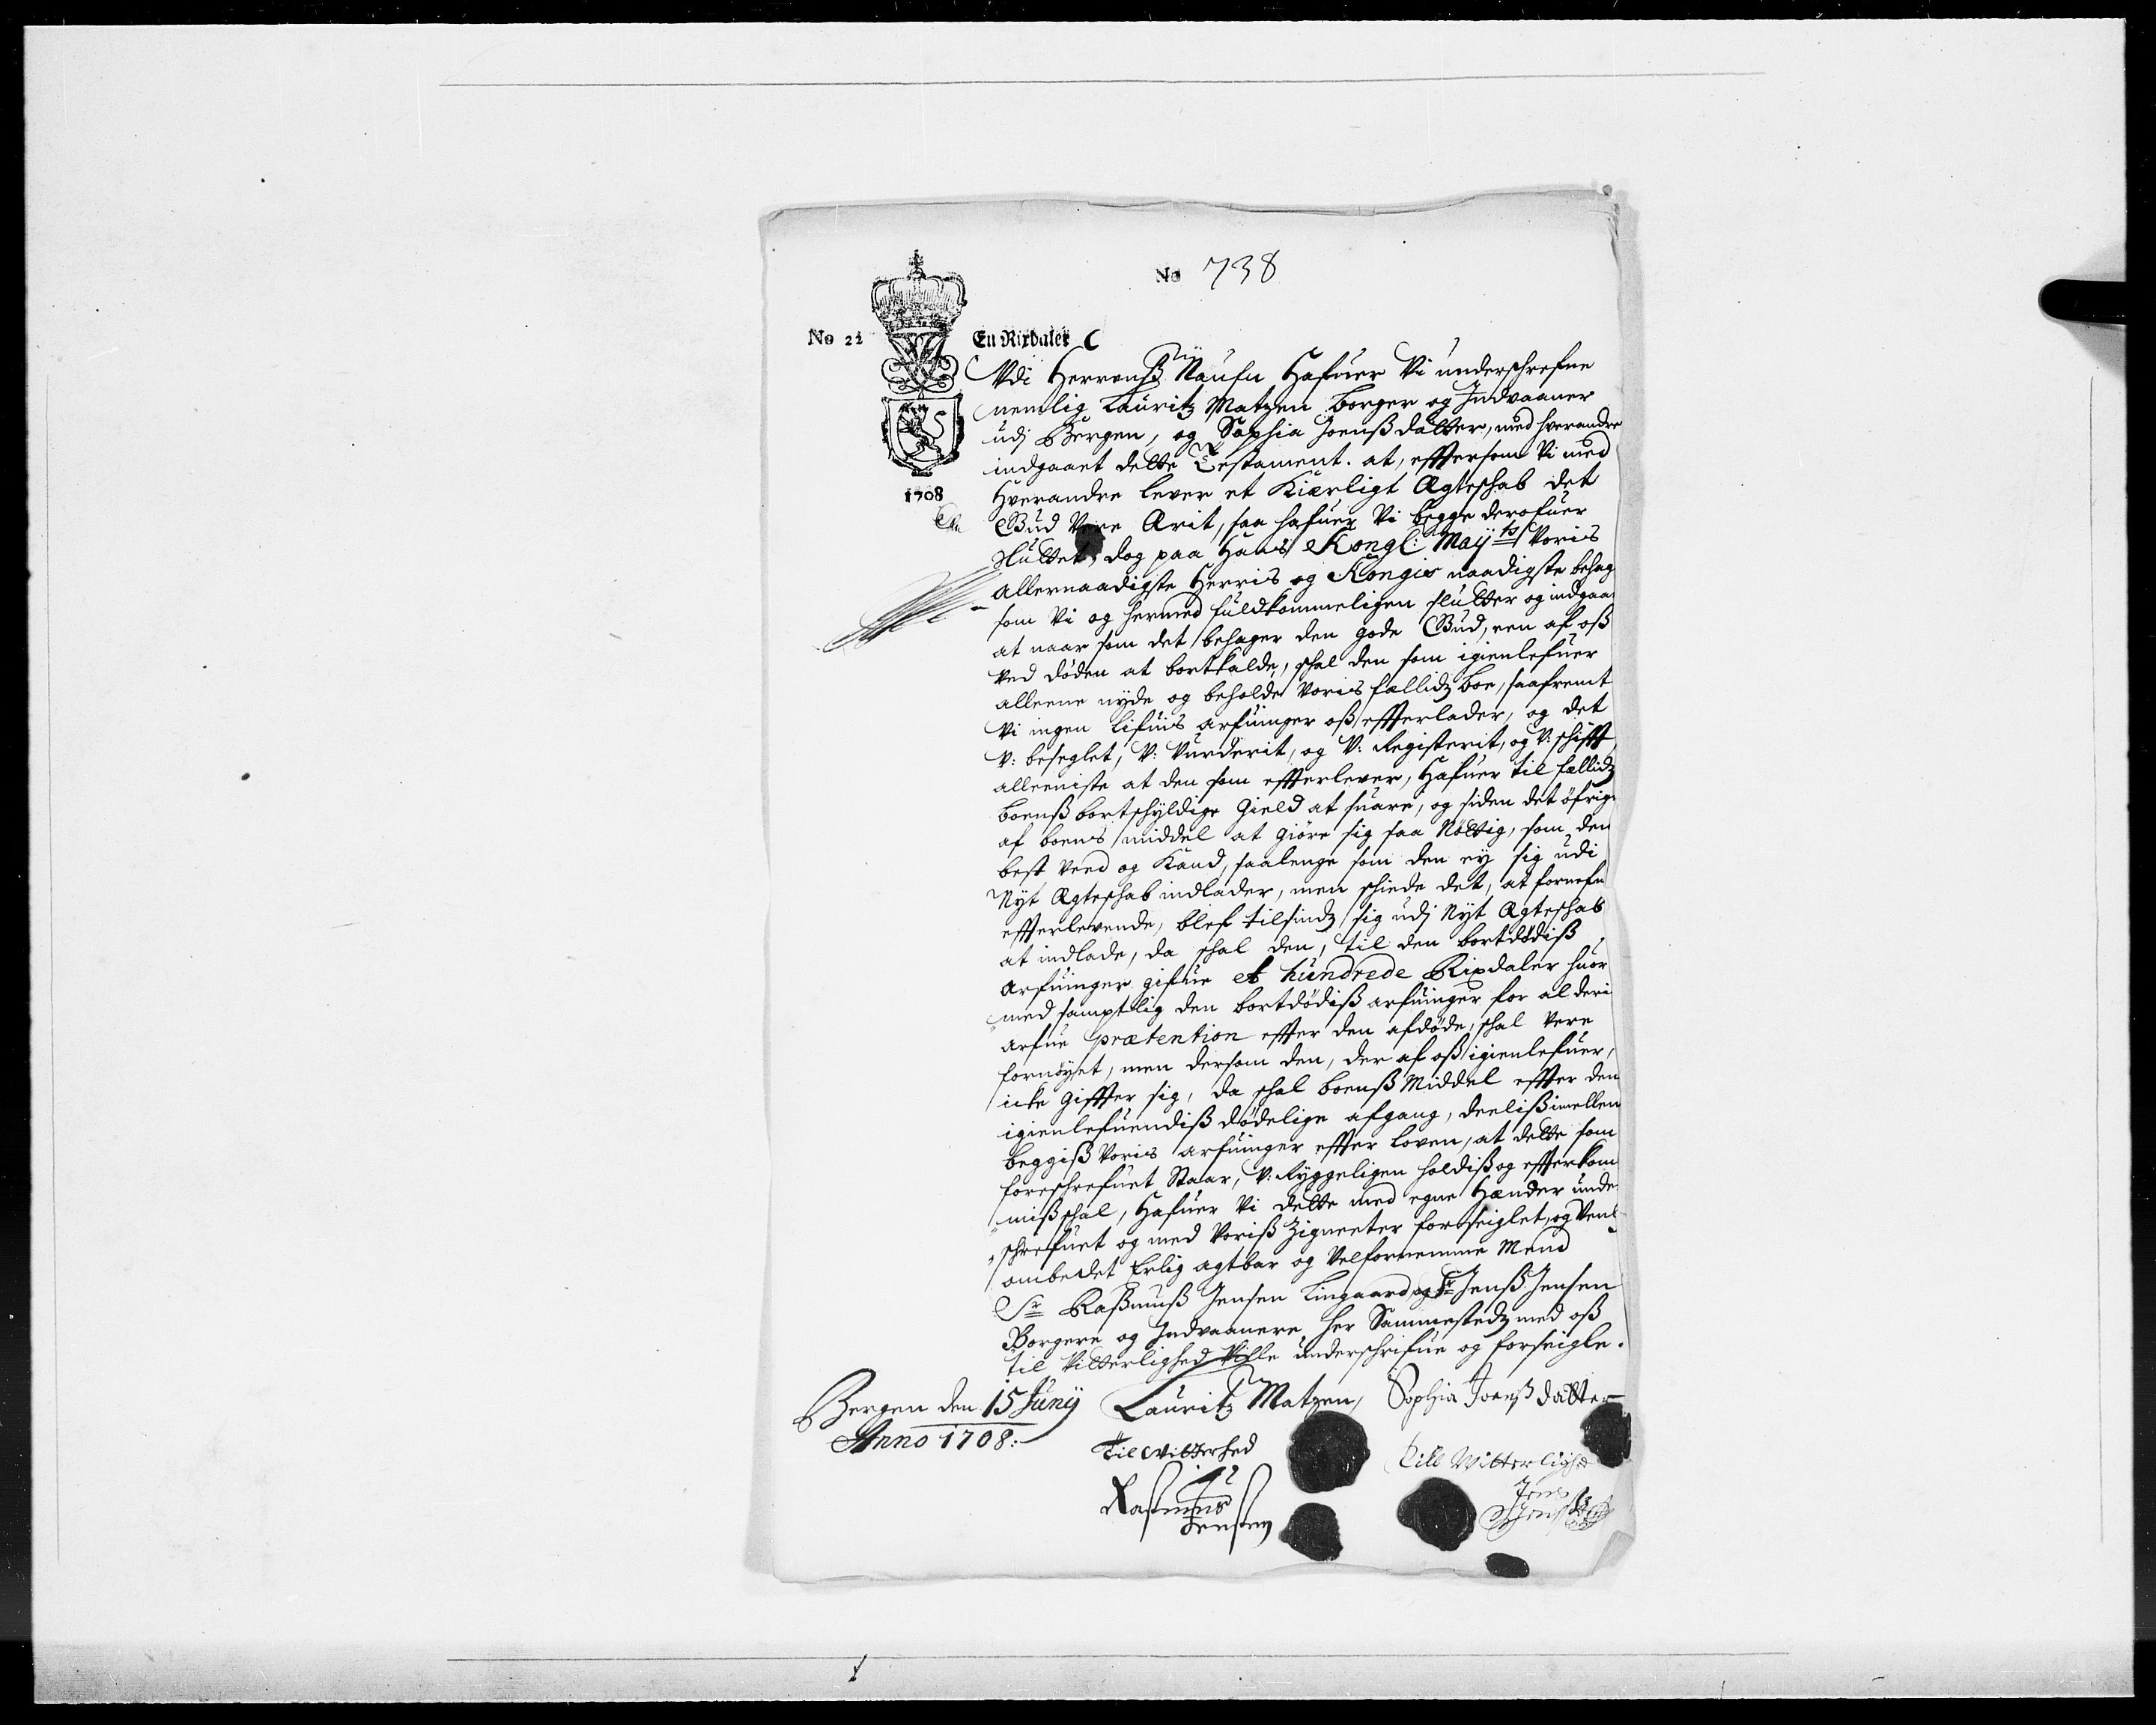 No 738
No 22
En Rixdaler C
1708
Udi Herrenß Naufn Hafuer Vi underschrefne
nemlig Lauritz Matzen borger og Indvaaner
udj Bergen, og Sophia Joenß datter, med hverandre
indgaaet dette Testament. at, efftersom Vi med
Hverandre lever et Kierligt Ægteschab det
Gud Vere Ærit, saa hafuer Vi begge derofuer
sluttet, dog paa Hans Kongl: Maÿts Voris
allernaadigste Herris og Kongis naadigste behag
som Vi og hermed fuldkommeligen slutter og indgaar
at naar som det behager den gode Gud, een af oß
ved døden at bortkalde, schal den som igienlefuer
alleene nyde og beholde Voris fællidz boe, saafremt
Vi ingen lifuis arfuinger oß effterlader, og det
V: beseglet, V: Vurderit, og V: Registerit, og V: schifft,
alleeniste at den som effterlever, Hafuer til fællidz
boenß bortschyldige Gield at suare, og siden det øfrige
af boens middel at giøre sig saa Nøttig, som den
best veed og Kand, saalenge som den ey sig udi
Nyt Ægteschab indlader, men schiede det, at fornefn
effterlevende, blef tilsindz sig udj Nyt Ægteschab
at indlade, da schal den, til den bortdødiß
Arfuinger gifue et hundrede Rixdaler huor
med samptlig den bortdødiß arfuinger for al deris
arfue prætention effter den afdøde, schal vere
fornøyet, men dersom den, der af oß igienlefuer,
icke giffter sig, da schal boenß Middel effter den
igienlefuendiß dødelige afgang, deeliß imellem
beggiß Voris arfuinger effter loven, at dette som
foreschrefuet Staar, V: ryggeligen holdiß og effterkom
miß schal, Hafuer Vi dette med egne Hænder under
schrefuet og med Voriß Zigneeter forseiglet, og Venl
ombedet Erlig agtbar og Velfornemme Mend
Sr Raßmuß Jensen Lingaard og Sr Jenß Jensen
Borgere og Indvaanere her Sammestedz med oß
til Vitterlighed Ville underschrifue og forseigle.
Bergen den 15 Junÿ
Anno 1708:
Lauritz Matzen, Sophia Joenß datter
Til Vitterhed
Till Witterlighed
Rasmus
Jensen
Jens
Jensen